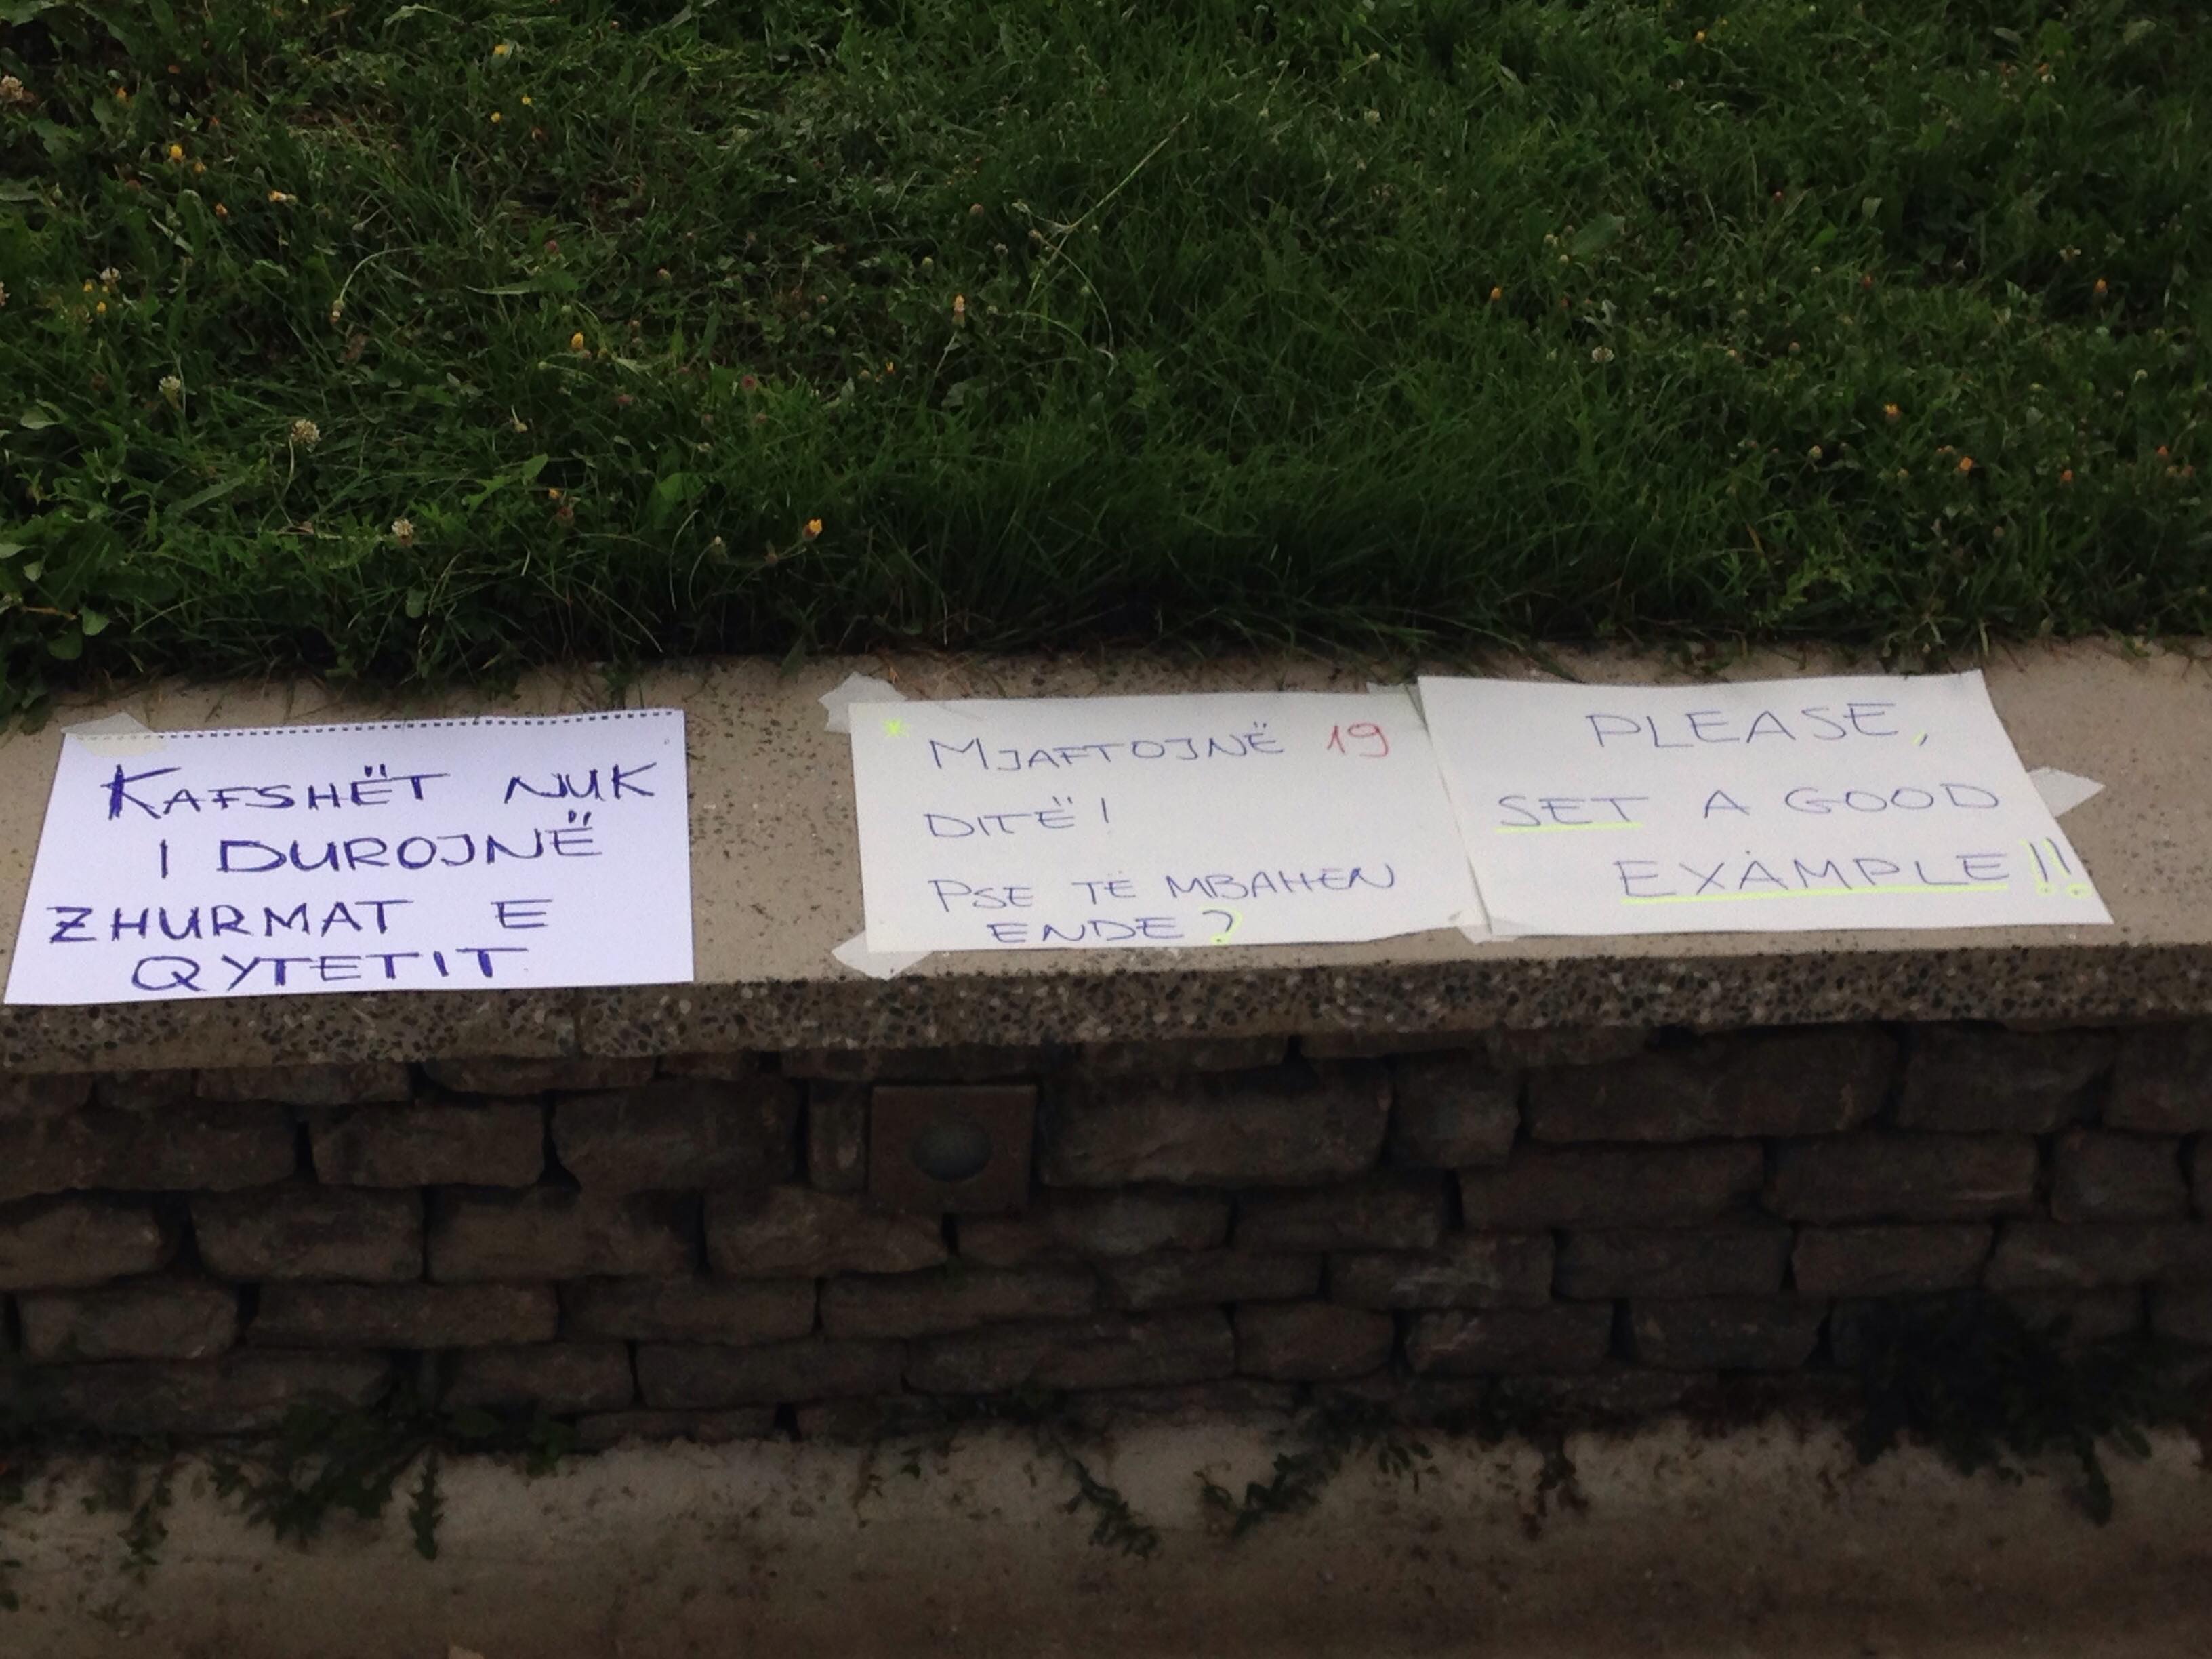 KAFSHËT NUK
I DUROJNË
ZHURMAT E
QYTETIT
* MJAFTOJNË 19
DITË!
PSE TË MBAHEN
ENDE?
PLEASE,
SET A GOOD
EXAMPLE!!